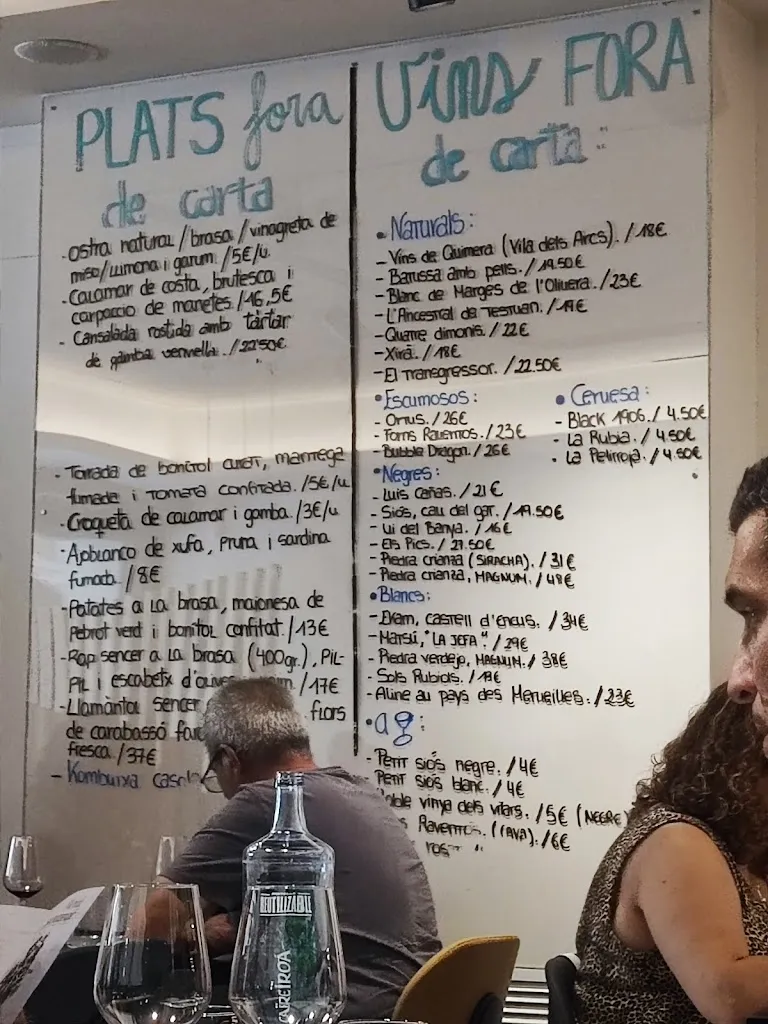 PLATS fora
de carta
·Ostra natural/brasa/vinagreta de
miso/llimona i garum. /5€/u.
-Calamar de costa, brutesca i
carpaccio de manetes. /16,5€
- Cansalada rostida amb tàrtar
de gamba vermella. /22'50€
- Torrada de bonítol curat, mantega
fumada i tomata confitada. /5€/u
-Croqueta de calamar i gamba. /3€/u
·Ajoblanco de xufa, pruna i sardina
fumada. /8€
-Patates a la brasa, maionesa de
pebrot verd i bonítol confitat. /13€
-Rap sencer a la brasa (400gr.), PIL-
PIL i escabetx
/17€
-Llamàntol sencer
flors
de carabassó
fresca. /37€
- Kombutxa
Vins FORA
de carta:
• Naturals:
- Vins de Quimera (Vila dels Arcs). /18€
- Barussa amb pells. /19.50€
- Blanc de Marges de l'Olivera. /23€
- L'Ancestral de Testuan. /19€
- Quatre dimonis. /22€
- Xirà. /18€
- El Transgressor. /22.50€
• Escumosos:
- Ortus. /26€
- Torns Raventós. /23€
- Bubble Dragon. /26€
• Cervesa:
- Black 1906. / 4.50€
- La Rubia. / 4.50€
- La Pelirroja. / 4.50€
• Negres:
- Luis Cañas. /21€
- Siós, cau del gat. /19.50€
- Vi del Banya. /16€
- Els Pics. / 27.50€
- Piedra crianza (SIRACHA). /31€
- Piedra crianza, MAGNUM. /48€
• Blancs:
- Ekam, castell d'encús. /34€
- Marsú, "LA JEFA". /29€
- Piedra verdejo, MAGNUM. / 38€
- Sols Rubiols. /19€
- Aline au pays des Merveilles. /23€
- Petit siós negre. /4€
Petit siós blanc. /4€
vinya dels vilars. /5€ (NEGRE)
Raventós. (CAVA). /6€
REUTILIZABLE
CABREIROÁ